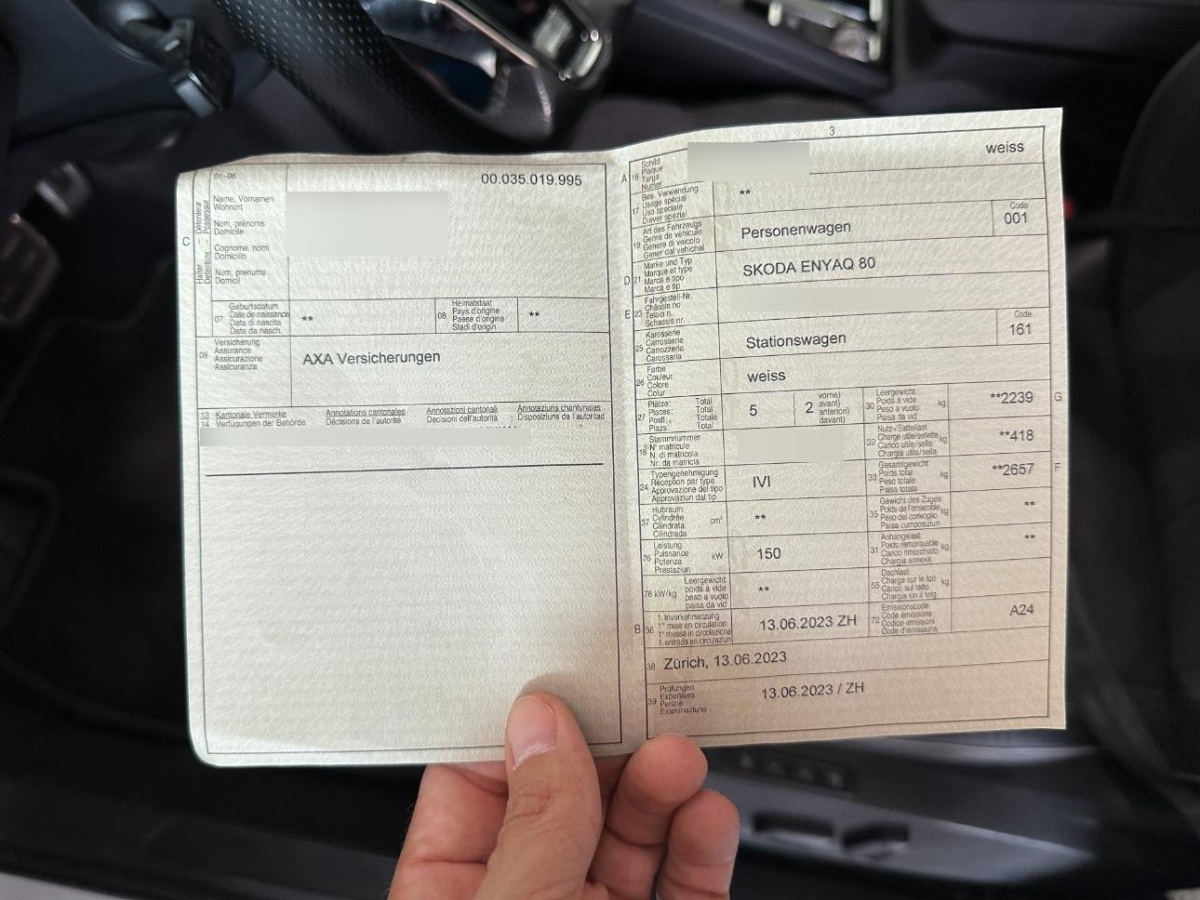 01-06
00.035.019.995
C
Halter
Détenteur
Name, Vornamen
Wohnort
Nom, prénoms
Domicile
Cognome, nomi
Domicilio
Num, prenums
Domicil
07
Geburtsdatum
Date de naissance
Data di nascita
Data da nasch.
**
08
Heimatstaat
Pays d'origine
Paese d'origine
Stadi d'origin
**
09
Versicherung
Assurance
Assicurazione
Assicuranza
AXA Versicherungen
13
14
Kantonale Vermerke
Verfügungen der Behörde
Annotations cantonales
Décisions de l'autorité
Annotazioni cantonali
Decisioni dell'autorità
Annotaziuns chantunalas
Disposiziuns da l'autoritad
3
A
15
Schild
Plaque
Targa
Numer
weiss
17
Bes. Verwendung
Usage spécial
Uso speciale
Diever spezial
**
19
Art des Fahrzeugs
Genre de véhicule
Genere di veicolo
Gener dal vehichel
Personenwagen
Code
001
D
21
Marke und Typ
Marque et type
Marca e tipo
Marca e tip
SKODA ENYAQ 80
E
23
Fahrgestell-Nr.
Châssis no
Telaio n.
Schassis nr.
25
Karosserie
Carrosserie
Carrozzeria
Carossaria
Stationswagen
Code
161
26
Farbe
Couleur
Colore
Colur
weiss
27
Plätze: Total
Places: Total
Posti: Totale
Plazs: Total
5
2
vorne)
avant)
anteriori)
davant)
30
Leergewicht
Poids à vide
Peso a vuoto
Paisa da vid
kg
**2239
G
18
Stammnummer
N° matricule
N. di matricola
Nr. da matricla
32
Nutz-/Sattellast
Charge utile/sellette
Carico utile/sella
Chargia utila/sella
kg
**418
24
Typengenehmigung
Réception par type
Approvazione del tipo
Approvaziun dal tip
IVI
33
Gesamtgewicht
Poids total
Peso totale
Paisa totala
kg
**2657
F
37
Hubraum
Cylindrée
Cilindrata
Cilindrada
cm³
**
35
Gewicht des Zuges
Poids de l'ensemble
Peso del convoglio
Paisa cumposiziun
kg
**
76
Leistung
Puissance
Potenza
Prestaziun
kW
150
31
Anhängelast
Poids remorquable
Carico rimorchiato
Chargia annexa
kg
**
78 kW/kg
Leergewicht
poids à vide
peso a vuoto
paisa da vid
**
55
Dachlast
Charge sur le toit
Carico sul tetto
Chargia sin il tetg
kg
B
36
1. Inverkehrsetzung
1re mise en circulation
1a messa in circolazione
1. entrada en circulaziun
13.06.2023 ZH
72
Emissionscode
Code émissions
Codice emissioni
Code d'emissiuns
A24
38
Zürich, 13.06.2023
39
Prüfungen
Expertises
Perizie
Examinaziuns
13.06.2023 / ZH